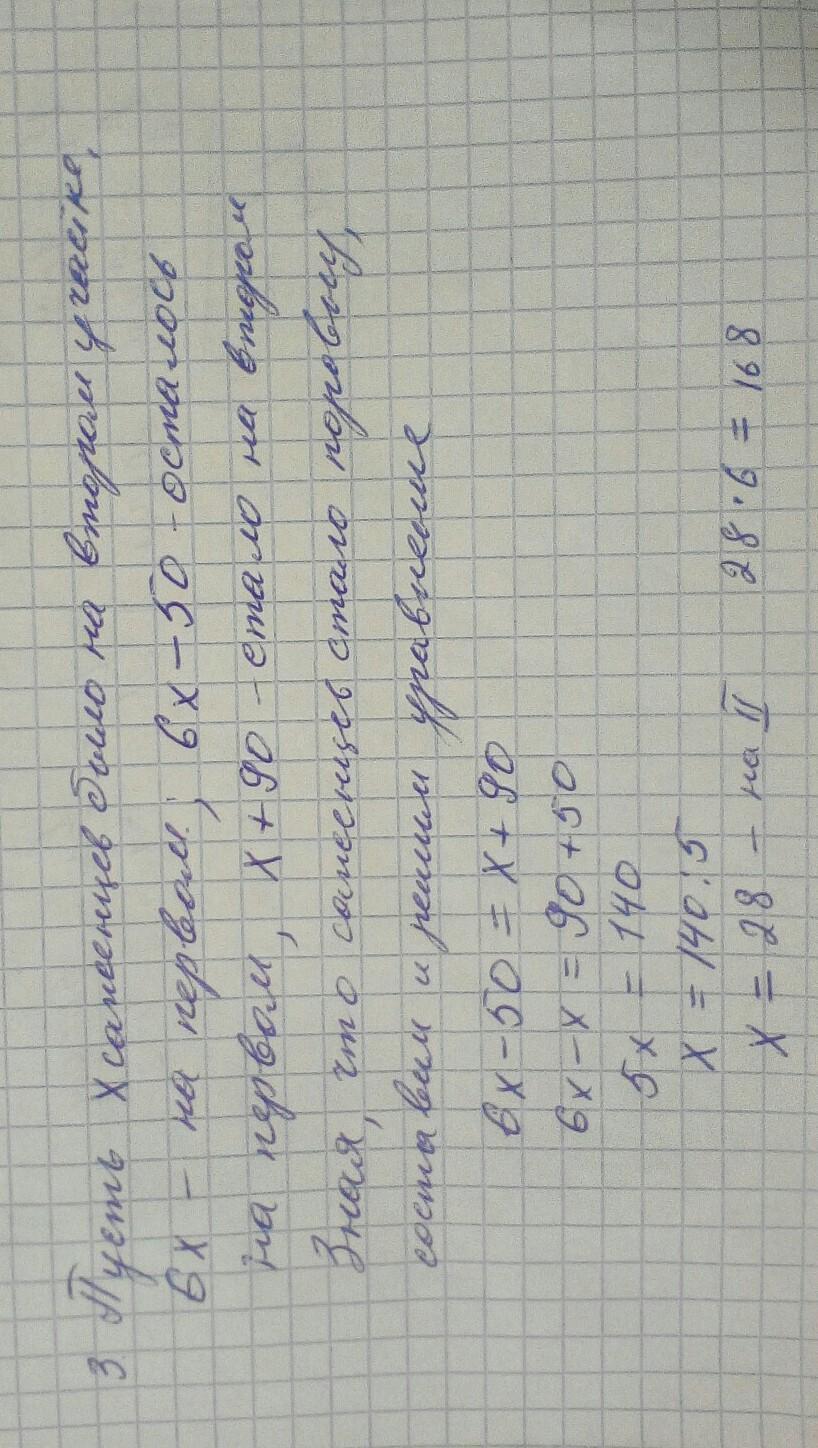 3. Пусть x саженцев было на втором участке,
6x - на первом; 6x - 50 - осталось
на первом, x + 90 - стало на втором
Зная, что саженцев стало поровну,
составим и решим уравнение
6x - 50 = x + 90
6x - x = 90 + 50
5x = 140
x = 140 : 5
x = 28 - на II 28 · 6 = 168